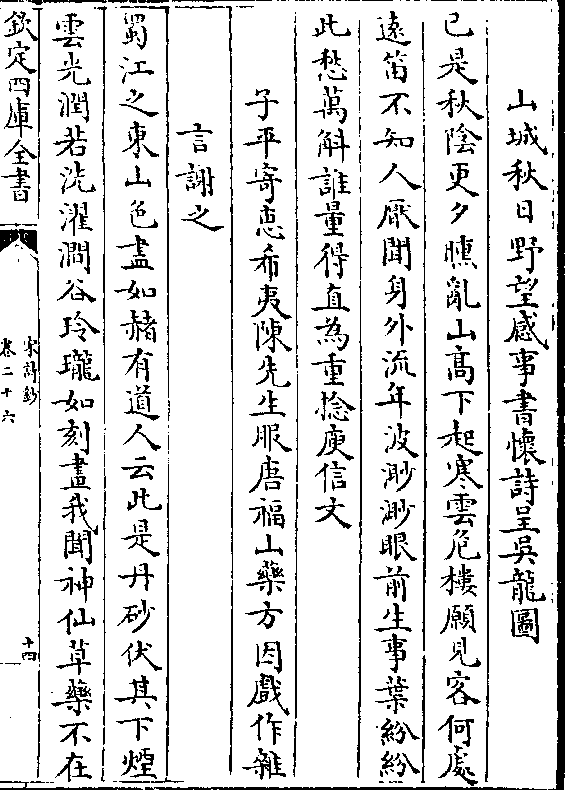 山城秋日野望感事書懷詩呈吳龍圖
已是秋陰更夕曛亂山高下起寒雲危樓願見客何處
遠笛不知人厭聞身外流年波渺渺眼前生事葉紛紛
此愁萬斛誰量得直為重捻庾信文
子平寄惠希夷陳先生服唐福山藥方因戲作雜
言謝之
蜀江之東山色盡如赭有道人云此是丹砂伏其下煙
雲光潤若洗濯澗谷玲瓏如刻畫我聞神仙草藥不在
欽定四庫全書
宋詩鈔
卷二十六
十四